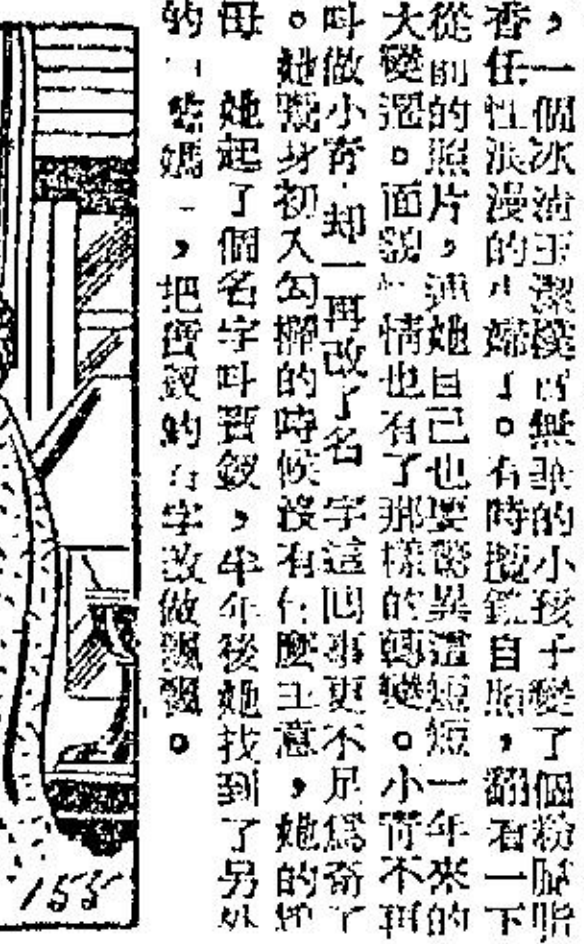 ，一個冰清玉潔樸直無華的小孩子變了個粉膩脂
香，任性浪漫的小婦了。有時攬鏡自照，翻看一下
從前的照片，連她自己也要驚異這短短一年來的
大變遷。面貌性情也有了那樣的轉變。小青不再
叫做小青，却一再改了名字這回事更不足爲奇了
。她賣身初入勾欄的時候沒有什麼主意，她的
母 她起了個名字叫寶釵，半年後她找到了另外
的一 媽 ，把寶釵的名字改做飄飄。
155